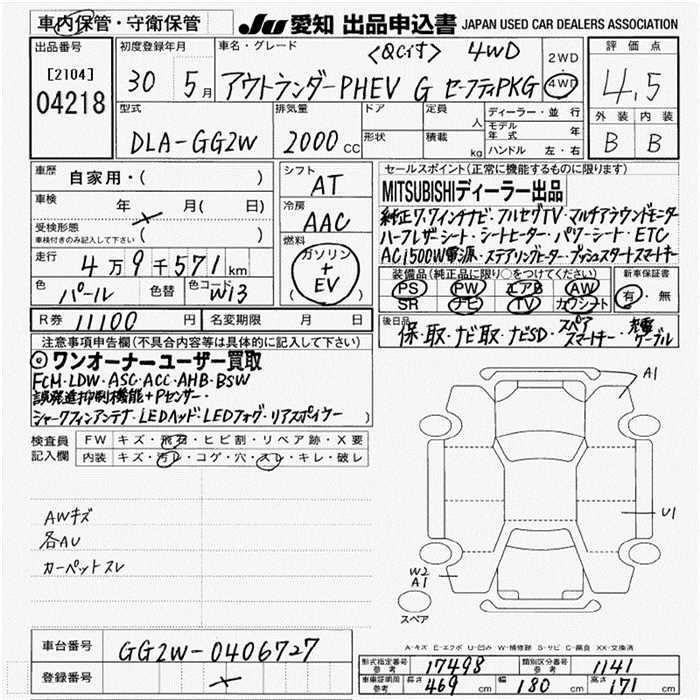 車内保管・守衛保管
JU 愛知 出品申込書 JAPAN USED CAR DEALERS ASSOCIATION
出品番号
[2104]
04218
初度登録年月
30 5月
車名・グレード
<QCげす> 4WD
アウトランダーPHEV G セーフティPKG
2WD
4WD
評価点
4.5
外装 内装
B B
型式
DLA-GG2W
排気量
2000cc
ドア
形状
定員 人
積載 kg
ディーラー・並行
モデル年式 年
ハンドル 左・右
車歴 自家用・( )
車検 年 月( 日)
受検形態
車検付きのみ記入して下さい ( )
走行 4万9千571km
色 パール 色替 色コード W13
シフト
AT
冷房
AAC
燃料
ガソリン
+
EV
セールスポイント(正常に機能するものに限ります)
MITSUBISHIディーラー出品
純正7.7インチナビ・フルセグTV・マルチアラウンドモニター
ハーフレザーシート・シートヒーター・パワーシート・ETC
AC1500W電源・ステアリングヒーター・プッシュスタートスマートキー
装備品(純正品に限り○をつけてください)
PS PW エアB AW
SR ナビ TV カワシート
新車保証書
有・無
R券 11100円
名変期限 月 日
後日品
保・取・ナビ取・ナビSD・スペアスマートキー・充電ケーブル
注意事項申告欄(不具合内容等は具体的に記入して下さい)
◎ワンオーナーユーザー買取
FCM・LDW・ASC・ACC・AHB・BSW
誤発進抑制機能+Pセンサー・
シャークフィンアンテナ・LEDヘッド・LEDフォグ・リアスポイラー
検査員記入欄
FW キズ・飛石・ヒビ割・リペア跡・X要
内装 キズ・汚レ・コゲ・穴・スレ・キレ・破レ
AWキズ
各AU
カーペットスレ
A1
U1
W2
A1
スペア
A-キズ E-エクボ U-凹み W-補修跡 S-サビ C-腐食 XX-交換済
車台番号 GG2W-0406727
登録番号
形式指定番号 参考 17498
類別区分番号 参考 1141
車庫証明用 参考 長さ 469cm 幅 180cm 高さ 171cm